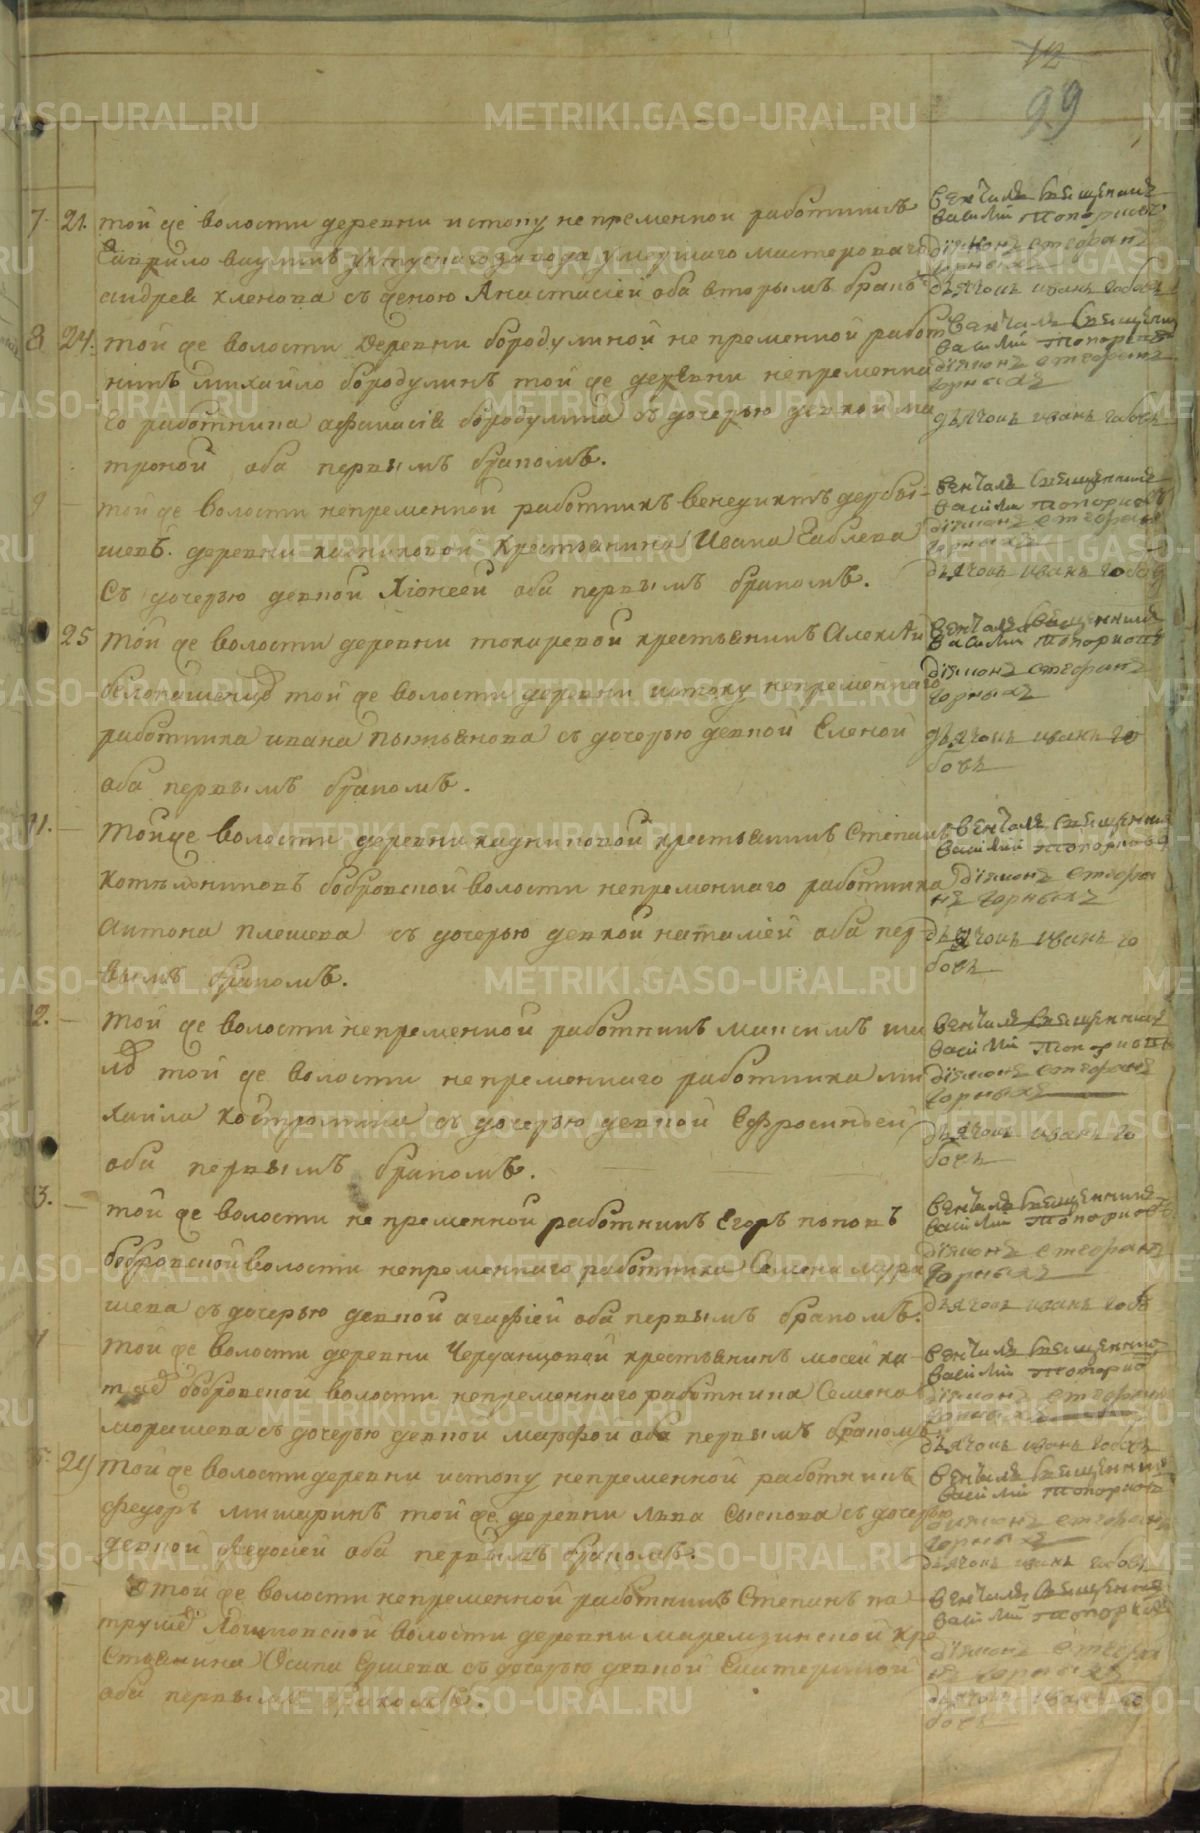 12
99
7. 21. той же волости деревни истоку непременной работникъ
Гаврило ваулинъ уктускаго завода умершаго мастероваго
андрея кленова съ женою Анастасіей оба вторымъ брако
венчалъ священникъ
василий топорковъ
діяконъ стефанъ
горныхъ
дьячокъ иванъ гобовъ
8 24. той же волости деревни бородулиной непременной работ
никъ михайло бородулинъ той же деревни непременна
го работника афанасія бородулина съ дочерью девкой ма
троной оба первымъ бракомъ.
венчалъ священник
василий топорковъ
діяконъ стефанъ
горныхъ
дьячокъ иванъ гобовъ
9 той же волости непременной работникъ венедиктъ дербы
шевъ. деревни кадниковой крестьянина Ивана
съ дочерью девкой Хіонеей оба первымъ бракомъ.
венчалъ священникъ
василии топорковъ
діяконъ стефанъ
горныхъ
дьячокъ иванъ гобов
25 той же волости деревни токаревой крестьянинъ Алексѣй
той же волости деревни истоку непременнаго
работника ивана пьянкова съ дочерью девкой Еленой
оба первымъ бракомъ.
венчалъ священникъ
василий топорковъ
діяконъ стефанъ
горныхъ
дьячокъ иванъ го
бовъ
11. той же волости деревни кадниковой крестьянинъ Степанъ
котельниковъ бобровской волости непременнаго работника
антона плешева съ дочерью девкой наталіей оба пер
вымъ бракомъ.
венчалъ священникъ
василий топорковъ
діяконъ стефа
нъ горныхъ
дьячокъ иванъ го
бовъ
2. той же волости непременной работникъ максимъ
той же волости непременнаго работника ми
хаила костромина съ дочерью девкой Ефросиньей
оба первымъ бракомъ.
венчалъ священникъ
василий топорковъ
діяконъ стефанъ
горныхъ
дьячокъ иванъ го
бовъ
3. той же волости непременной работникъ Егоръ поповъ
бобровской волости непременнаго работника Семена мура
шева съ дочерью девкой агафіей оба первымъ бракомъ.
венчалъ священникъ
василий топорковъ
діяконъ стефанъ
горныхъ
дьячокъ иванъ гобо
той же волости деревни Черданцовой крестьянинъ мосей
бобровской волости непременнаго работника Семена
морашева съ дочерью девкой марфой оба первымъ бракомъ
венчалъ священник
василий топорко
діяконъ стефанъ
горныхъ
дьячокъ иванъ гобовъ
той же волости деревни истоку непременной работникъ
федоръ мишаринъ той же деревни льва сыскова съ дочерью
девкой федосьей оба первымъ бракомъ.
венчалъ священник
василий топорков
діяконъ стефанъ
горныхъ
дьячокъ иванъ гобовъ
той же волости непременной работникъ Степанъ па
волости деревни мареизинской кре
стьянина Осипа съ дочерью девкой Екатериной
оба первымъ бракомъ.
венчалъ священник
василий топорковъ
діяконъ стефа
нъ горныхъ
дьячокъ иванъ го
бовъ
METRIKI.GASO-URAL.RU